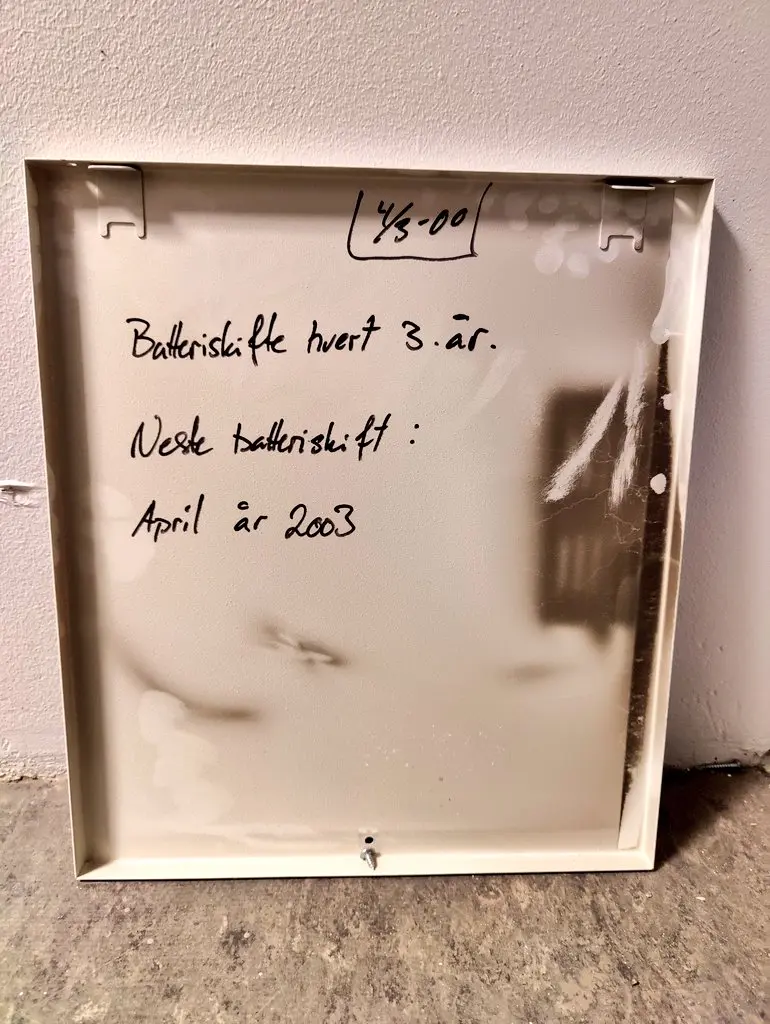 4/3-00
Batteriskifte hvert 3. år.
Neste batteriskift :
April år 2003